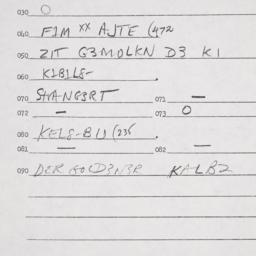 030 O
040 F1M ** AJTE (472
050 ZIT G3MOLKN D3 K1
060 K1B1L8-
070 STANG3RT 071 —
072 — 073 O
080 KEL8-BU (235
081 — 082 —
090 DER GOLD3N3R KALB2